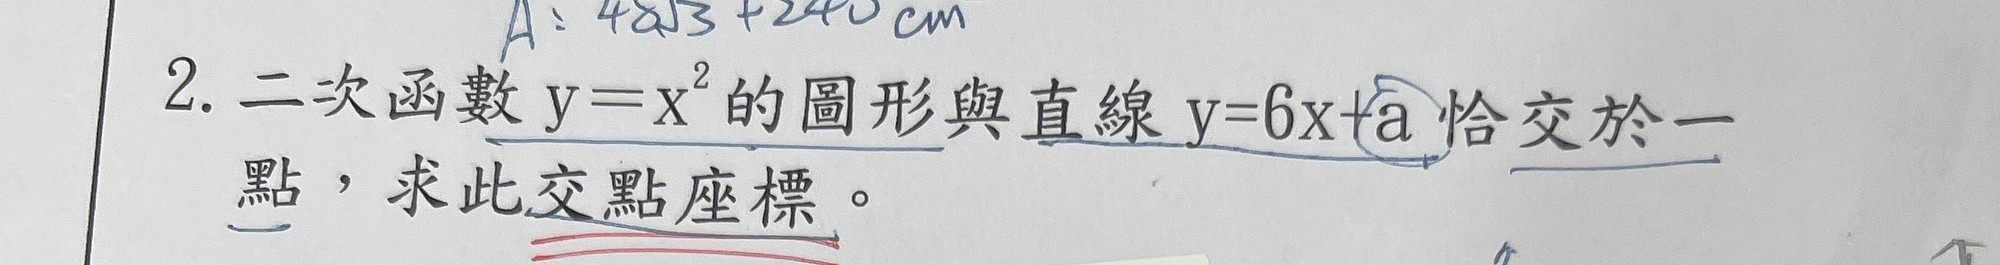 A: 48√3 + 240 cm
2. 二次函數 y＝x² 的圖形與直線 y=6x+a 恰交於一
點，求此交點座標。